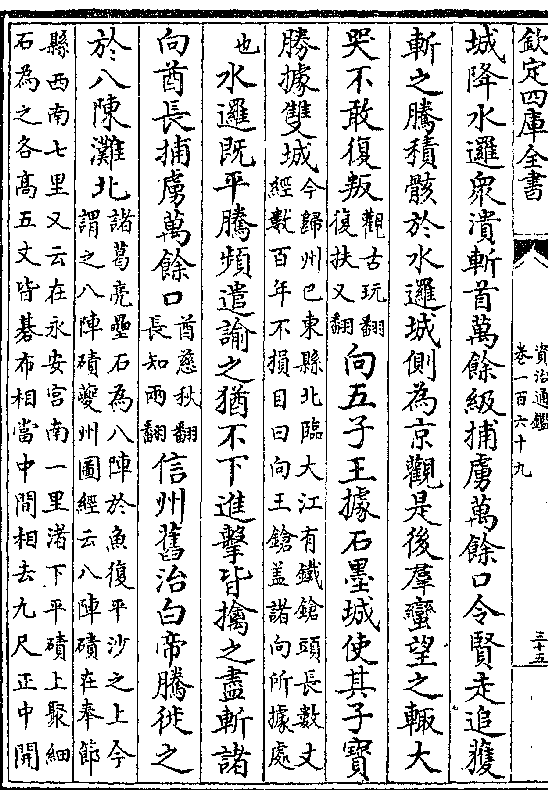 欽定四庫全書
資治通鑑
卷一百六十九
三十五
城降水邏衆潰斬首萬餘級捕虜萬餘口令賢走追獲
斬之騰積骸於水邏城側為京觀是後羣蠻望之輒大
哭不敢復叛觀古玩翻
復扶又翻向五子王據石墨城使其子寶
勝據雙城今歸州巴東縣北臨大江有鐵鎗頭長數丈
經數百年不損目曰向王鎗盖諸向所據處
也水邏既平騰頻遣諭之猶不下進擊皆擒之盡斬諸
向酋長捕虜萬餘口酋慈秋翻
長知兩翻信州舊治白帝騰徙之
於八陳灘北諸葛亮壘石為八陣於魚復平沙之上今
謂之八陣磧夔州圖經云八陣磧在奉節
縣西南七里又云在永安宮南一里渚下平磧上聚細
石為之各高五丈皆碁布相當中間相去九尺正中開